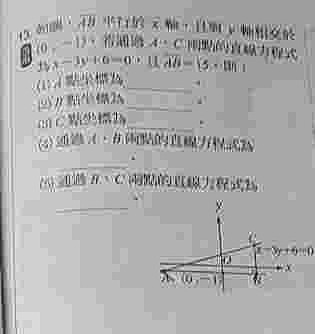 13. 如圖，AB 平行於 x 軸，且與 y 軸相交於
(0，-1)，若通過 A、C 兩點的直線方程式
為 x-3y+6=0，且 AB=15，則：
(1) A 點坐標為 。
(2) B 點坐標為 。
(3) C 點坐標為 。
(4) 通過 A、B 兩點的直線方程式為
。
(5) 通過 B、C 兩點的直線方程式為
。
y
C
x-3y+6=0
x
A (0，-1) B